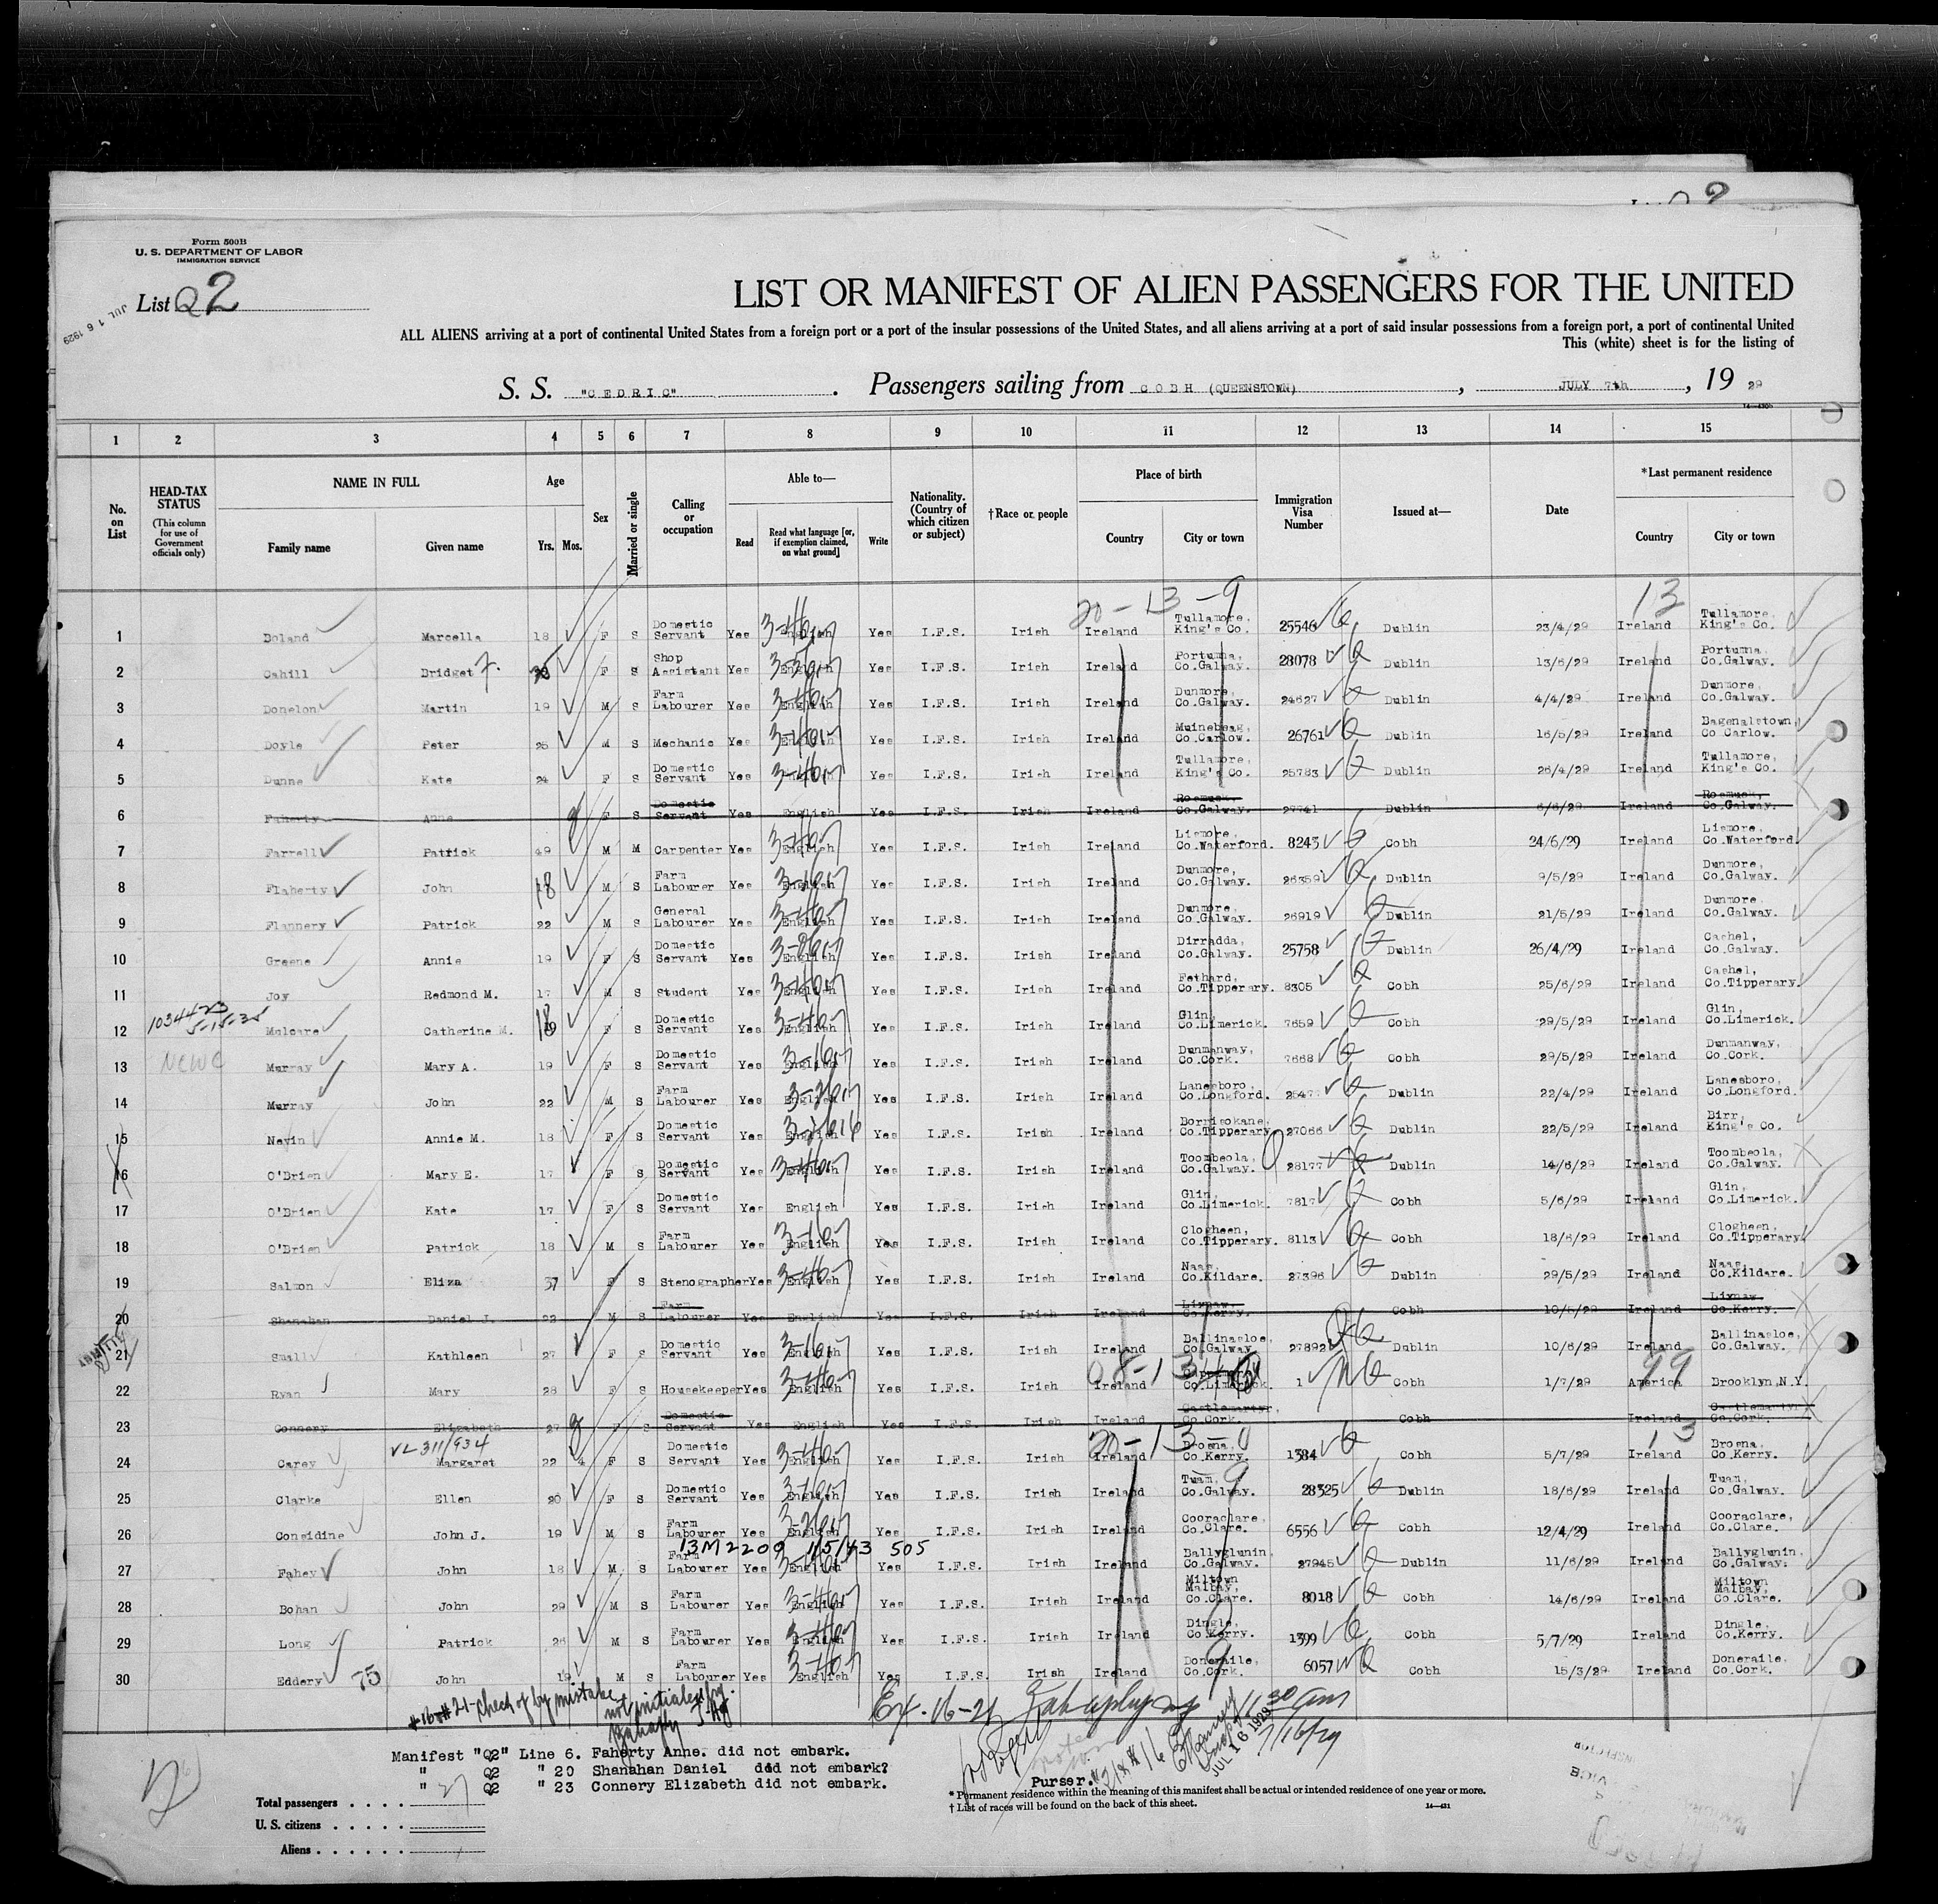 Form 500B
U. S. DEPARTMENT OF LABOR
IMMIGRATION SERVICE
List Q2
JUL 16 1929
LIST OR MANIFEST OF ALIEN PASSENGERS FOR THE UNITED
ALL ALIENS arriving at a port of continental United States from a foreign port or a port of the insular possessions of the United States, and all aliens arriving at a port of said insular possessions from a foreign port, a port of continental United
This (white) sheet is for the listing of
S. S. "CEDRIC". Passengers sailing from COBH (QUEENSTOWN), JULY 7th, 19 29
1 2 3 4 5 6 7 8 9 10 11 12 13 14 15
No. on List
HEAD-TAX STATUS (This column for use of Government officials only)
NAME IN FULL Family name Given name
Age Yrs. Mos.
Sex
Married or single
Calling or occupation
Able to— Read Read what language [or, if exemption claimed, on what ground] Write
Nationality. (Country of which citizen or subject)
†Race or people
Place of birth Country City or town
Immigration Visa Number
Issued at—
Date
*Last permanent residence Country City or town
20-13-9 13
1 Boland Marcella 18 F S Domestic Servant Yes English Yes I.F.S. Irish Ireland Tullamore, King's Co. 25546 Dublin 23/4/29 Ireland Tullamore, King's Co.
2 Cahill Bridget F. F S Shop Assistant Yes English Yes I.F.S. Irish Ireland Portumna, Co.Galway. 28078 Dublin 13/6/29 Ireland Portumna, Co.Galway.
3 Donelon Martin 19 M S Farm Labourer Yes English Yes I.F.S. Irish Ireland Dunmore, Co.Galway. 24627 Dublin 4/4/29 Ireland Dunmore, Co.Galway.
4 Doyle Peter 25 M S Mechanic Yes English Yes I.F.S. Irish Ireland Muinebeag, Co.Carlow. 26761 Dublin 16/5/29 Ireland Bagenalstown, Co Carlow.
5 Dunne Kate 24 F S Domestic Servant Yes Yes I.F.S. Irish Ireland Tullamore, King's Co. 25783 Dublin 26/4/29 Ireland Tullamore, King's Co.
6 Faherty Anne F S Domestic Servant Yes English Yes I.F.S. Irish Ireland Rosmuck, Co.Galway. 27741 Dublin 6/6/29 Ireland Rosmuck, Co.Galway.
7 Farrell Patrick 49 M M Carpenter Yes English Yes I.F.S. Irish Ireland Lismore, Co.Waterford. 8243 Cobh 24/6/29 Ireland Lismore, Co.Waterford.
8 Flaherty John 18 M S Farm Labourer Yes English Yes I.F.S. Irish Ireland Dunmore, Co.Galway. 26359 Dublin 9/5/29 Ireland Dunmore, Co.Galway.
9 Flannery Patrick 22 M S General Labourer Yes English Yes I.F.S. Irish Ireland Dunmore, Co.Galway. 26919 Dublin 21/5/29 Ireland Dunmore, Co.Galway.
10 Greene Annie 19 F S Domestic Servant Yes English Yes I.F.S. Irish Ireland Dirradda, Co.Galway. 25758 Dublin 26/4/29 Ireland Cashel, Co.Galway.
11 Joy Redmond M. 17 M S Student Yes English Yes I.F.S. Irish Ireland Fethard, Co.Tipperary. 8305 Cobh 25/6/29 Ireland Cashel, Co.Tipperary.
12 Mulcare Catherine M. 18 F S Domestic Servant Yes English Yes I.F.S. Irish Ireland Glin, Co.Limerick. 7659 Cobh 29/5/29 Ireland Glin, Co.Limerick.
13 Murray Mary A. 19 F S Domestic Servant Yes English Yes I.F.S. Irish Ireland Dunmanway, Co.Cork. 7668 Cobh 29/5/29 Ireland Dunmanway, Co.Cork.
14 Murray John 22 M S Farm Labourer Yes English Yes I.F.S. Irish Ireland Lanesboro, Co.Longford. Dublin 22/4/29 Ireland Lanesboro, Co.Longford.
15 Nevin Annie M. 18 F S Domestic Servant Yes English Yes I.F.S. Irish Ireland Borrisokane, Co.Tipperary 27066 Dublin 22/5/29 Ireland Birr, King's Co.
16 O'Brien Mary E. 17 F S Domestic Servant Yes English Yes I.F.S. Irish Ireland Toombeola, Co.Galway. 28177 Dublin 14/6/29 Ireland Toombeola, Co.Galway.
17 O'Brien Kate 17 F S Domestic Servant Yes English Yes I.F.S. Irish Ireland Glin, Co.Limerick. 7817 Cobh 5/6/29 Ireland Glin, Co.Limerick.
18 O'Brien Patrick 18 M S Farm Labourer Yes English Yes I.F.S. Irish Ireland Clogheen, Co.Tipperary. 8113 Cobh 18/6/29 Ireland Clogheen, Co.Tipperary
19 Salmon Eliza 37 F S Stenographer Yes English Yes I.F.S. Irish Ireland Naas, Co.Kildare. 27396 Dublin 29/5/29 Ireland Naas, Co.Kildare.
20 Shanahan Daniel J. 22 M S Farm Labourer Yes English Yes I.F.S. Irish Ireland Lixnaw, Co.Kerry. Cobh 10/5/29 Ireland Lixnaw, Co.Kerry.
21 Small Kathleen 27 F S Domestic Servant Yes English Yes I.F.S. Irish Ireland Ballinasloe, Co.Galway 27892 Dublin 10/6/29 Ireland Ballinasloe, Co.Galway.
22 Ryan Mary 28 F S Housekeeper Yes English Yes I.F.S. Irish Ireland Co.Limerick. 1 Cobh 1/7/29 America Brooklyn,N.Y. 99
23 Connery Elizabeth 27 F S Domestic Servant Yes English Yes I.F.S. Irish Ireland Castlemartyr, Co.Cork. Cobh Ireland Castlemartyr, Co.Cork.
VL 311/934
24 Carey Margaret 22 F S Domestic Servant Yes English Yes I.F.S. Irish Ireland Brosna, Co.Kerry. 1384 Cobh 5/7/29 Ireland Brosna, Co.Kerry.
25 Clarke Ellen 20 F S Domestic Servant Yes English Yes I.F.S. Irish Ireland Tuam, Co.Galway. 28325 Dublin 18/6/29 Ireland Tuam, Co.Galway.
26 Considine John J. 19 M S Farm Labourer Yes English Yes I.F.S. Irish Ireland Cooraclare, Co.Clare. 6556 Cobh 12/4/29 Ireland Cooraclare, Co.Clare.
13M2209 1/5/43 505
27 Fahey John 18 M S Farm Labourer Yes English Yes I.F.S. Irish Ireland Ballyglunin, Co.Galway. 27945 Dublin 11/6/29 Ireland Ballyglunin, Co.Galway.
28 Bohan John 29 M S Farm Labourer Yes English Yes I.F.S. Irish Ireland Miltown Malbay, Co.Clare. 8018 Cobh 14/6/29 Ireland Miltown Malbay, Co.Clare.
29 Long Patrick 26 M S Farm Labourer Yes English Yes I.F.S. Irish Ireland Dingle, Co.Kerry. 1399 Cobh 5/7/29 Ireland Dingle, Co.Kerry.
30 Eddery 75 John 19 M S Farm Labourer Yes English Yes I.F.S. Irish Ireland Doneraile, Co.Cork. 6057 Cobh 15/3/29 Ireland Doneraile, Co.Cork.
#16 #21 - check of by mistake
not initialed by
Ex. 16-21 11 30 am
7/16/29
JUL 16 1929
Manifest "Q2" Line 6. Faherty Anne. did not embark.
" Q2 " 20 Shanahan Daniel did not embark?
" Q2 " 23 Connery Elizabeth did not embark.
Purser.
Total passengers . . . . 27
U. S. citizens . . . . .
Aliens . . . . . .
* Permanent residence within the meaning of this manifest shall be actual or intended residence of one year or more.
† List of races will be found on the back of this sheet.
14—431